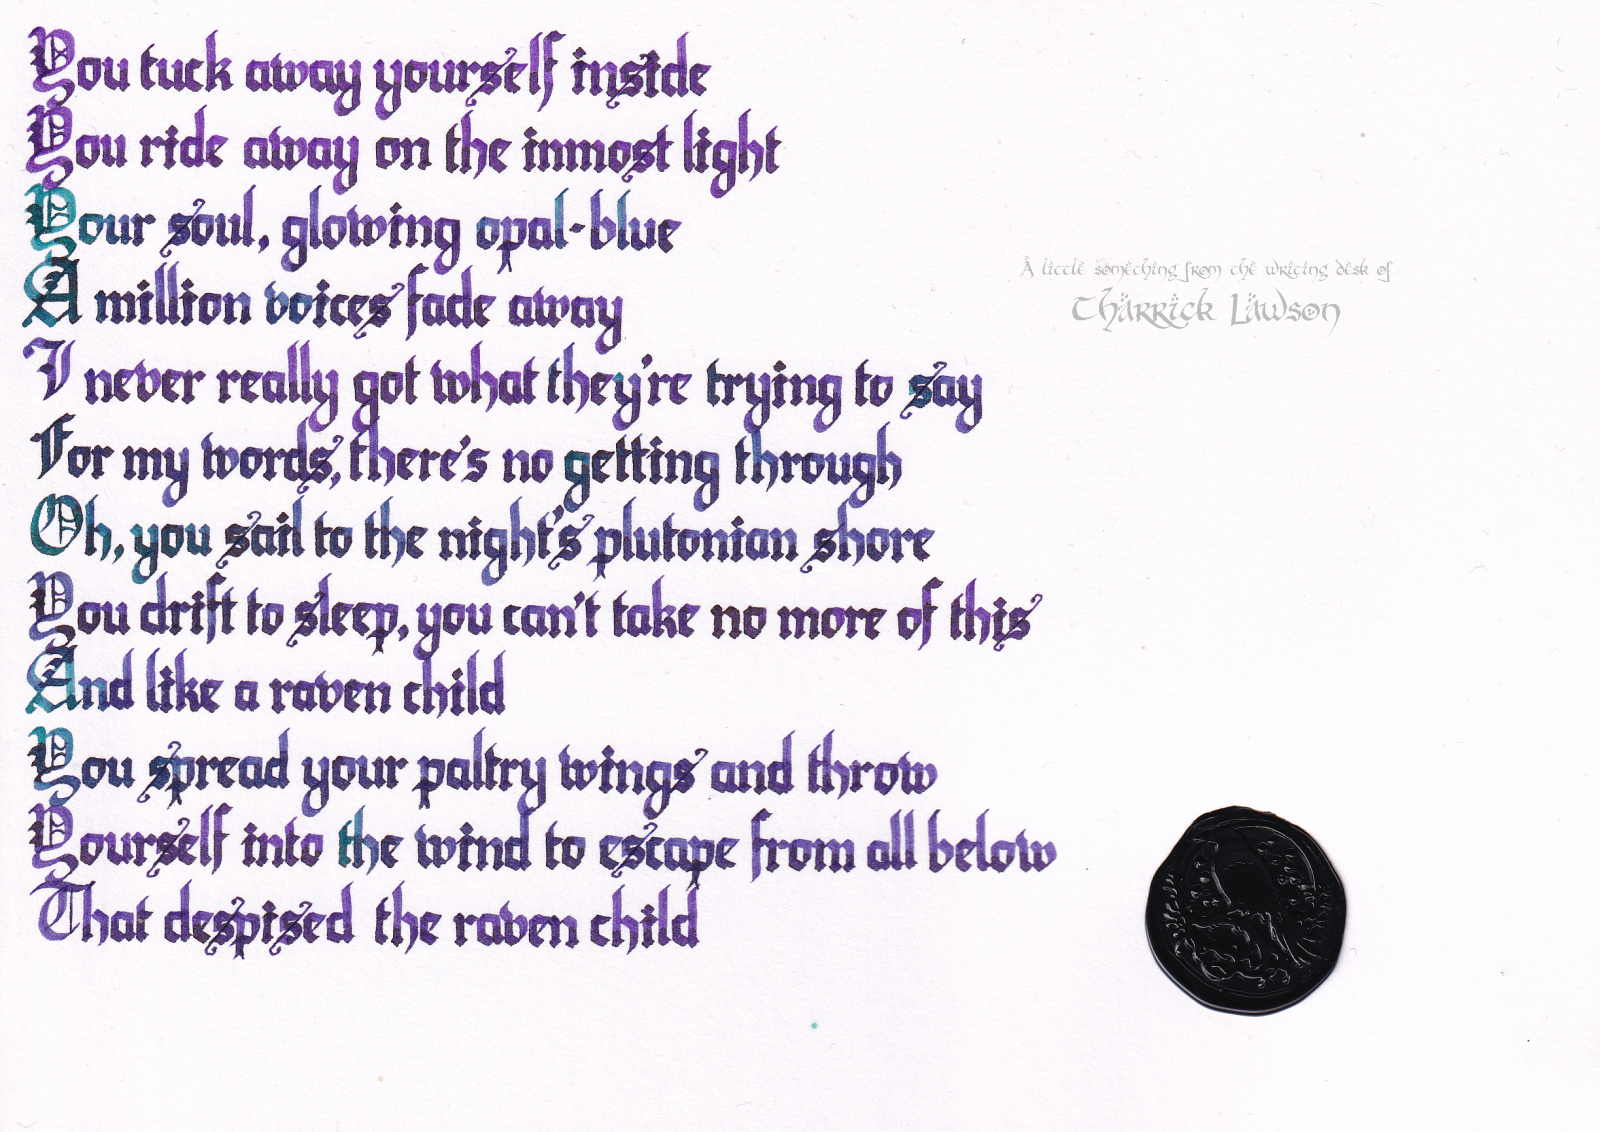 You tuck away yourself inside
You ride away on the inmost light
Your soul, glowing opal-blue
A million voices fade away
I never really got what they're trying to say
For my words, there's no getting through
Oh, you sail to the night's plutonian shore
You drift to sleep, you can't take no more of this
And like a raven child
You spread your paltry wings and throw
Yourself into the wind to escape from all below
That despised the raven child
A little something from the writing desk of
Tharrick Lawson